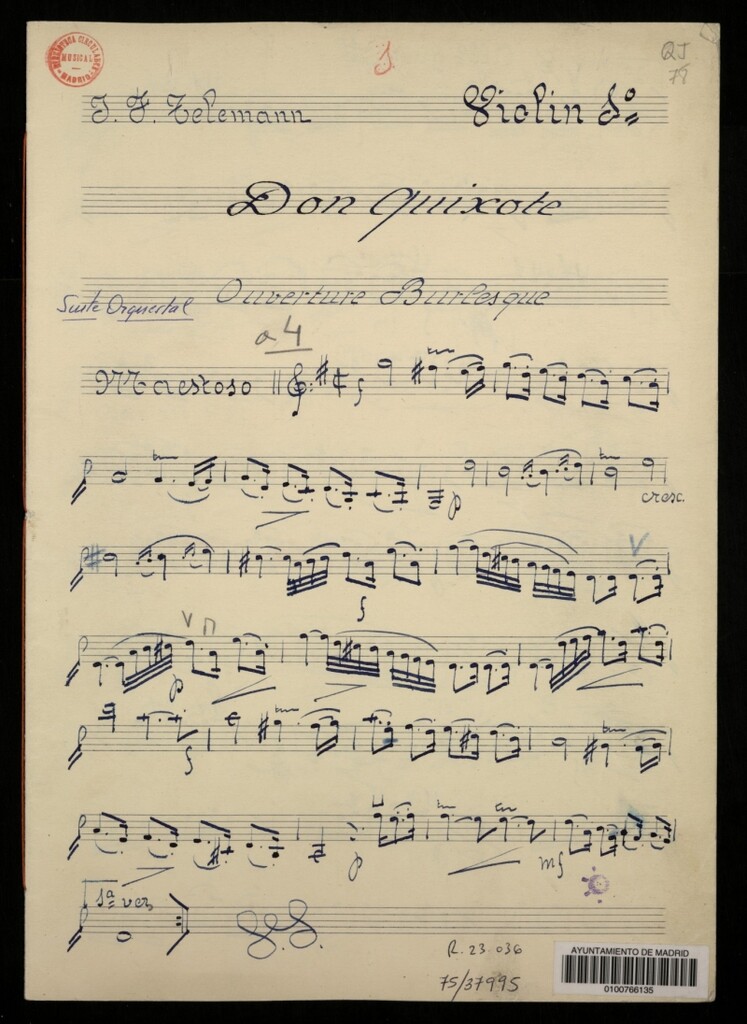 BIBLIOTECA CIRCULANTE
MUSICAL
MADRID
1
QJ
78
J. F. Telemann
Violin 1º
Don Quixote
Suite Orquestal
Ouverture Burlesque
a 4
Maestoso
f
tr
tr
p
tr
cresc.
f
V
V
p
f
tr
tr
tr
tr
p
mf
1ª vez
R. 23.036
75/37995
AYUNTAMIENTO DE MADRID
0100766135